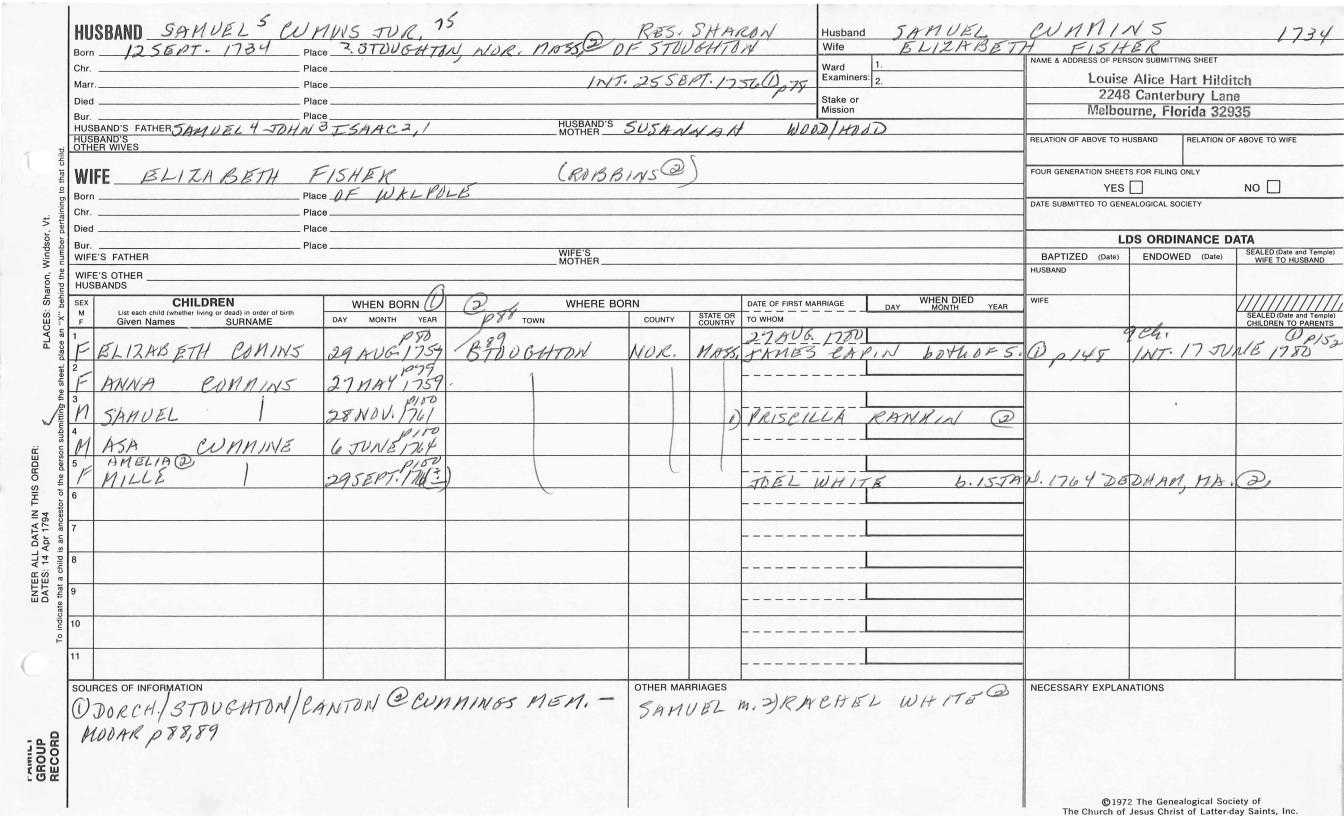 HUSBAND SAMUEL 5 CUMMINS JUR. 75 RES. SHARON
Born 12 SEPT. 1734 Place ?. STOUGHTON, NOR. MASS ② OF STOUGHTON
Chr. Place
Marr. Place INT. 25 SEPT. 1756 ① p78
Died Place
Bur. Place
HUSBAND'S FATHER SAMUEL 4 - JOHN 3 ISAAC 2,1 HUSBAND'S MOTHER SUSANNAH WOOD/HOOD
HUSBAND'S OTHER WIVES
WIFE ELIZABETH FISHER (ROBBINS ②)
Born Place OF WALPOLE
Chr. Place
Died Place
Bur. Place
WIFE'S FATHER WIFE'S MOTHER
WIFE'S OTHER HUSBANDS
Husband SAMUEL CUMMINS 1734
Wife ELIZABETH FISHER
Ward 1.
Examiners: 2.
Stake or Mission
NAME & ADDRESS OF PERSON SUBMITTING SHEET
Louise Alice Hart Hilditch
2248 Canterbury Lane
Melbourne, Florida 32935
RELATION OF ABOVE TO HUSBAND RELATION OF ABOVE TO WIFE
FOUR GENERATION SHEETS FOR FILING ONLY
YES NO
DATE SUBMITTED TO GENEALOGICAL SOCIETY
LDS ORDINANCE DATA
BAPTIZED (Date) ENDOWED (Date) SEALED (Date and Temple) WIFE TO HUSBAND
HUSBAND
WIFE
SEALED (Date and Temple) CHILDREN TO PARENTS
SEX M F CHILDREN WHEN BORN ① ② p88 WHERE BORN DATE OF FIRST MARRIAGE WHEN DIED
List each child (whether living or dead) in order of birth
Given Names SURNAME DAY MONTH YEAR TOWN COUNTY STATE OR COUNTRY TO WHOM DAY MONTH YEAR
1 p80 89 27 AUG. 1780 9 Ch. ① p152
F ELIZABETH COMINS 29 AUG. 1757 STOUGHTON NOR. MASS. JAMES CAPIN both OF S. ① p148 INT. 17 JUNE 1780
2 p79
F ANNA COMMINS 27 MAY 1759
3 p100
M SAMUEL 28 NOV. 1761 1) PRISCILLA RANKIN ②
4 p100
M ASA CUMMINE 6 JUNE 1764
5 AMELIA ② p100
F MILLE 29 SEPT. JOEL WHITE b. 15 JAN. 1764 DEDHAM, MA. ②
6
7
8
9
10
11
SOURCES OF INFORMATION
① DORCH/STOUGHTON/CANTON ② CUMMINGS MEM. –
MODAR p 88,89
OTHER MARRIAGES
SAMUEL m. 2) RACHEL WHITE ②
NECESSARY EXPLANATIONS
©1972 The Genealogical Society of
The Church of Jesus Christ of Latter-day Saints, Inc.
FAMILY GROUP RECORD
ENTER ALL DATA IN THIS ORDER:
DATES: 14 Apr 1794
PLACES: Sharon, Windsor, Vt.
To indicate that a child is an ancestor of the person submitting the sheet, place an "X" behind the number pertaining to that child.